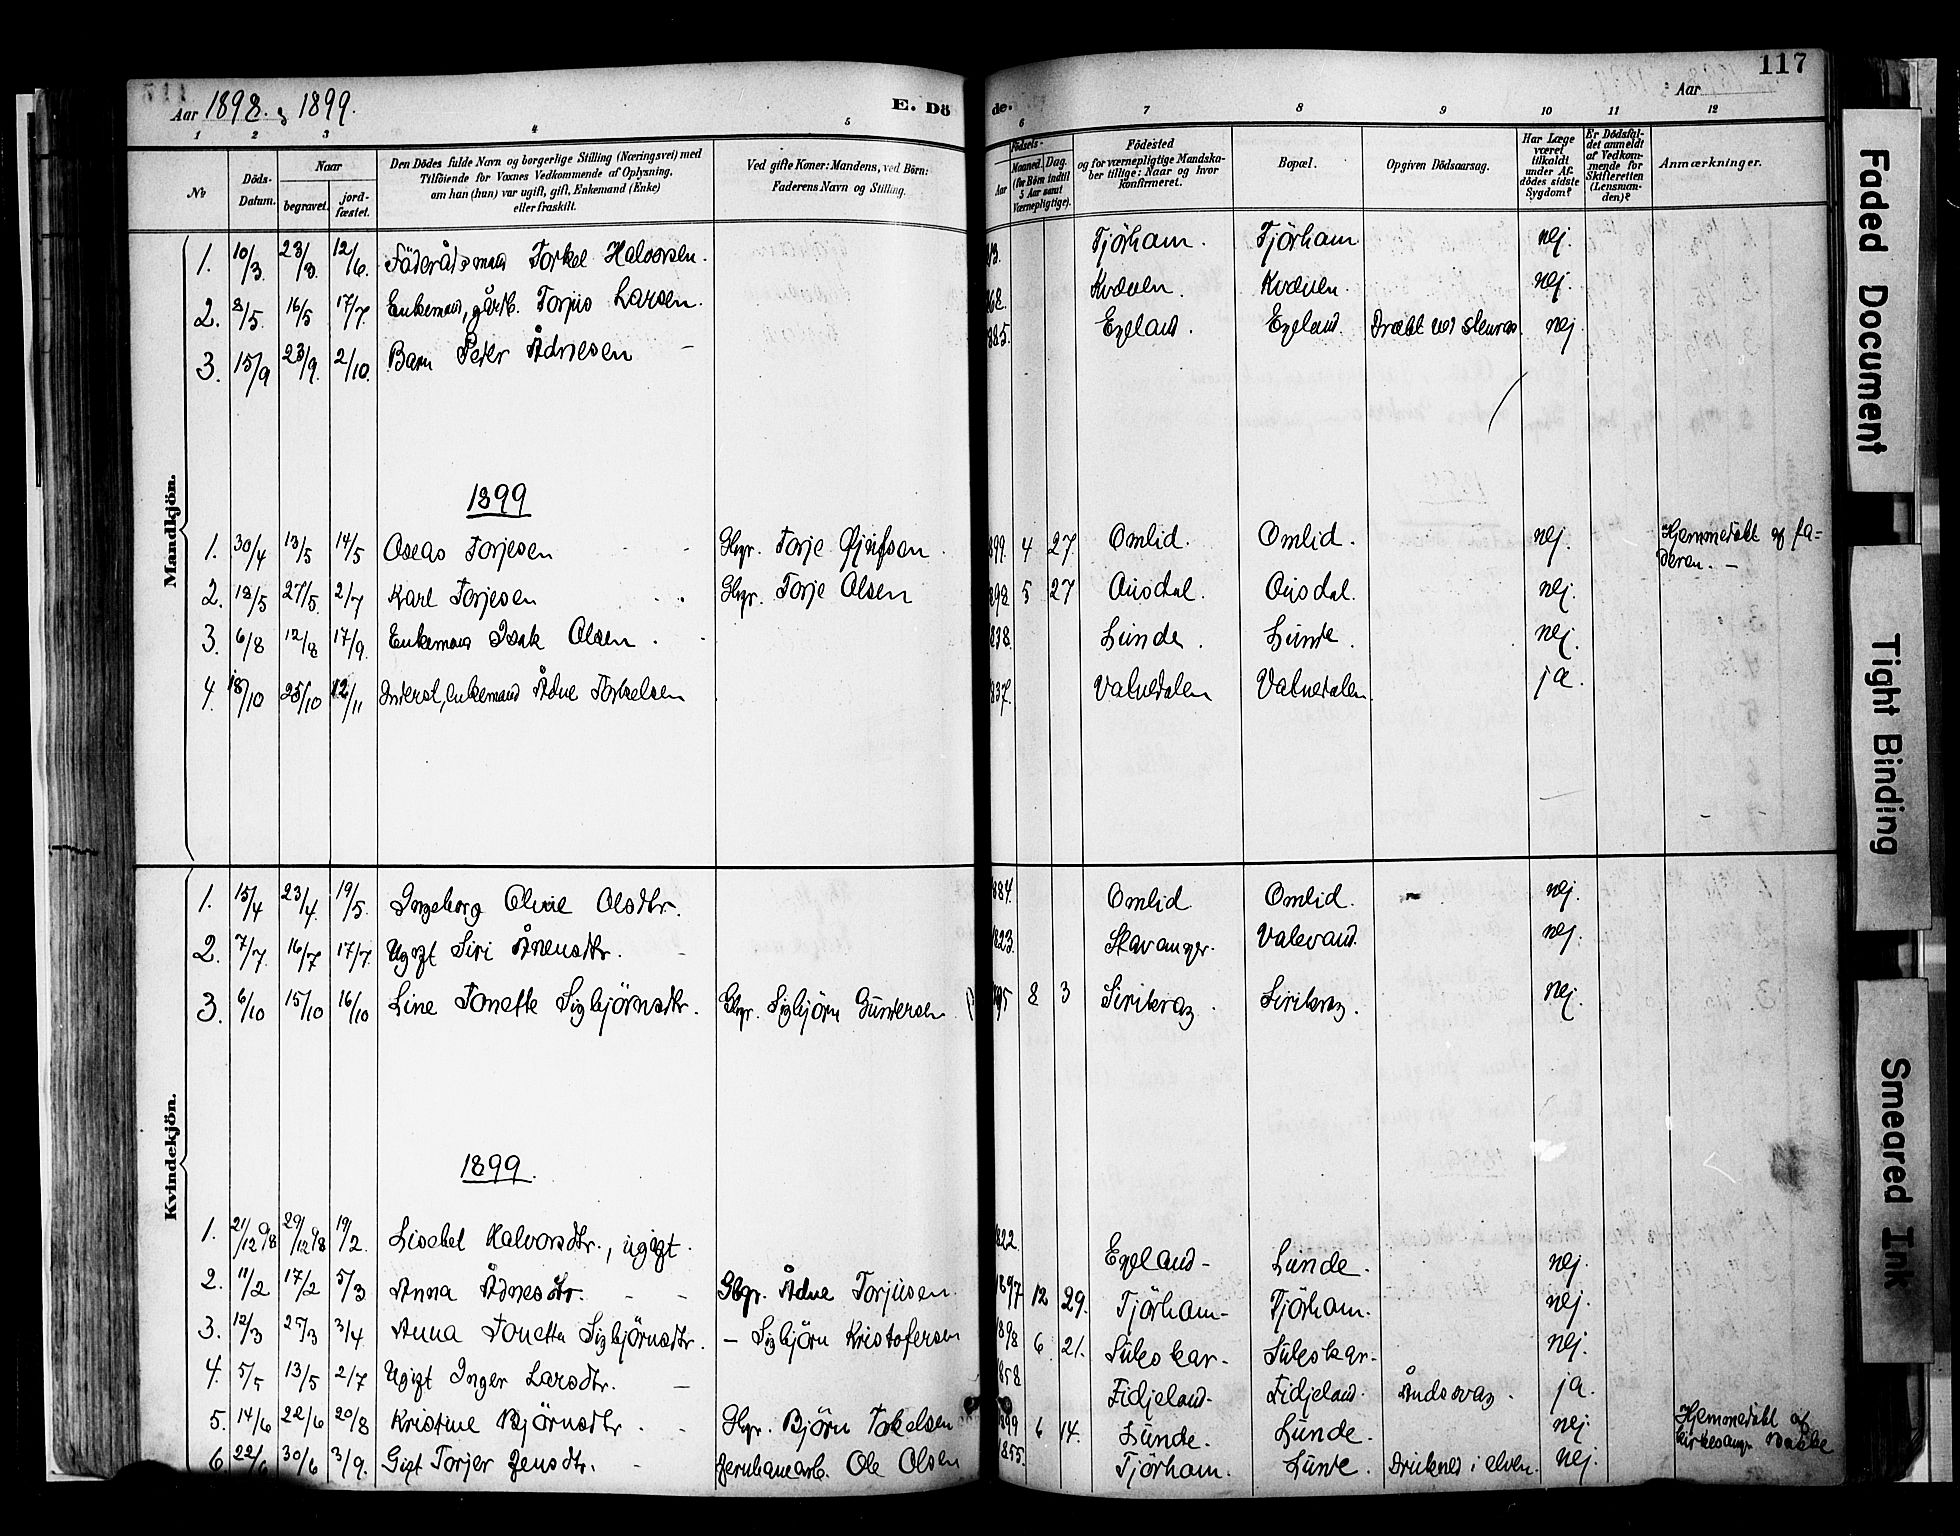 117
Aar 1898. & 1899.
E. Dö
de.
Aar
1 2 3 4 5 6 7 8 9 10 11 12
No
Döds-Datum.
Naar
begravet.
jord-fæstet.
Den Dödes fulde Navn og borgerlige Stilling (Næringsvei) med
Tilföiende for Voxnes Vedkommende af Oplysning,
om han (hun) var ugift, gift, Enkemand (Enke)
eller fraskilt.
Ved gifte Koner: Mandens, ved Börn:
Faderens Navn og Stilling.
Födsels-
Aar
Maaned. Dag.
(for Börn indtil
5 Aar samt
Værnepligtige).
Födested
og for værnepligtige Mandska-
ber tillige: Naar og hvor
konfirmeret.
Bopæl.
Opgiven Dödsaarsag.
Har Læge
været
tilkaldt
under Af-
dödes sidste
Sygdom?
Er Dödsfal-
det anmeldt
af Vedkom-
mende for
Skifteretten
(Lensman-
den)?
Anmærkninger.
Mandkjön.
1. 10/3. 23/3. 12/6. Föderådsmand Torkel Halvorsen. Tjörham. Tjörham nej.
2. 8/5. 16/5 17/7. Enkemand, gårdb. Torjus Larsen. 68. Kvæven. Kvæven. nej.
3. 15/9 23/9. 2/10. Barn Peter Ådnesen 885. Egeland. Egeland. Dræbt ved stenras. nej
1899
1. 30/4 13/5 14/5 Oseas Torjesen Gbgr. Torje 899. 4 27 Omlid. Omlid. nej. Hjemmedøbt af fa-
deren. -
2. 13/5 27/5. 2/7 Karl Torjesen Gbgr. Torje Olsen 898 5 27 Ousdal. Ousdal. nej.
3. 6/8 12/8 17/9. Enkemand Isak Olsen. 838. Lunde. Lunde. nej.
4. 18/10 25/10 12/11 Inderst, enkemand Ådne Torkelsen 837. Valnedalen Valnedalen ja.
Kvindekjön.
1. 15/4 23/4. 19/5. Ingeborg Olsdtr. 884. Omlid Omlid. nej.
2. 7/7. 16/7 17/7. Ugift Siri Ånensdtr. 823. Stavanger. Valevand. nej.
3. 6/10 15/10 16/10 Line Tonette Sigbjörnsdtr. Gbgr. Sigbjörn Gundersen 95 8 3 Sirikrag. Sirikrag. nej.
1899.
1. 21/12 98 29/12 98 19/2. Lisebet Halvorsdtr., ugigt. 822. Egeland- Lunde. nej.
2. 11/2 17/2 5/3 Anna Ådnesdtr. Gbgr. Ådne Torjusen. 1897 12 29. Tjörham- Tjörham. nej.
3. 12/3 25/3 3/4 Anna Tonette Sigbjörnsdtr. - Sigbjörn Kristofersen 1898 6 21. Suleskar- Suleskar- nej.
4. 5/5 13/5 2/7 Ugigt Inger Larsdtr. 858 Fidjeland- Fidjeland- Åndsvag. ja.
5. 14/6 22/6 20/8 Kristine Björnsdtr. Gbgr. Björn Torkelsen 1899 6 14. Lunde. Lunde. nej Hjemmedøbt af
kirkesangr. Bakke
6. 22/6 30/6 3/9. Gift Torjer Jensdtr. Jernbanearb. Ole Olsen 1855. Tjörham. Lunde. Druknet i elven. nej.
Faded Document
Tight Binding
Smeared Ink